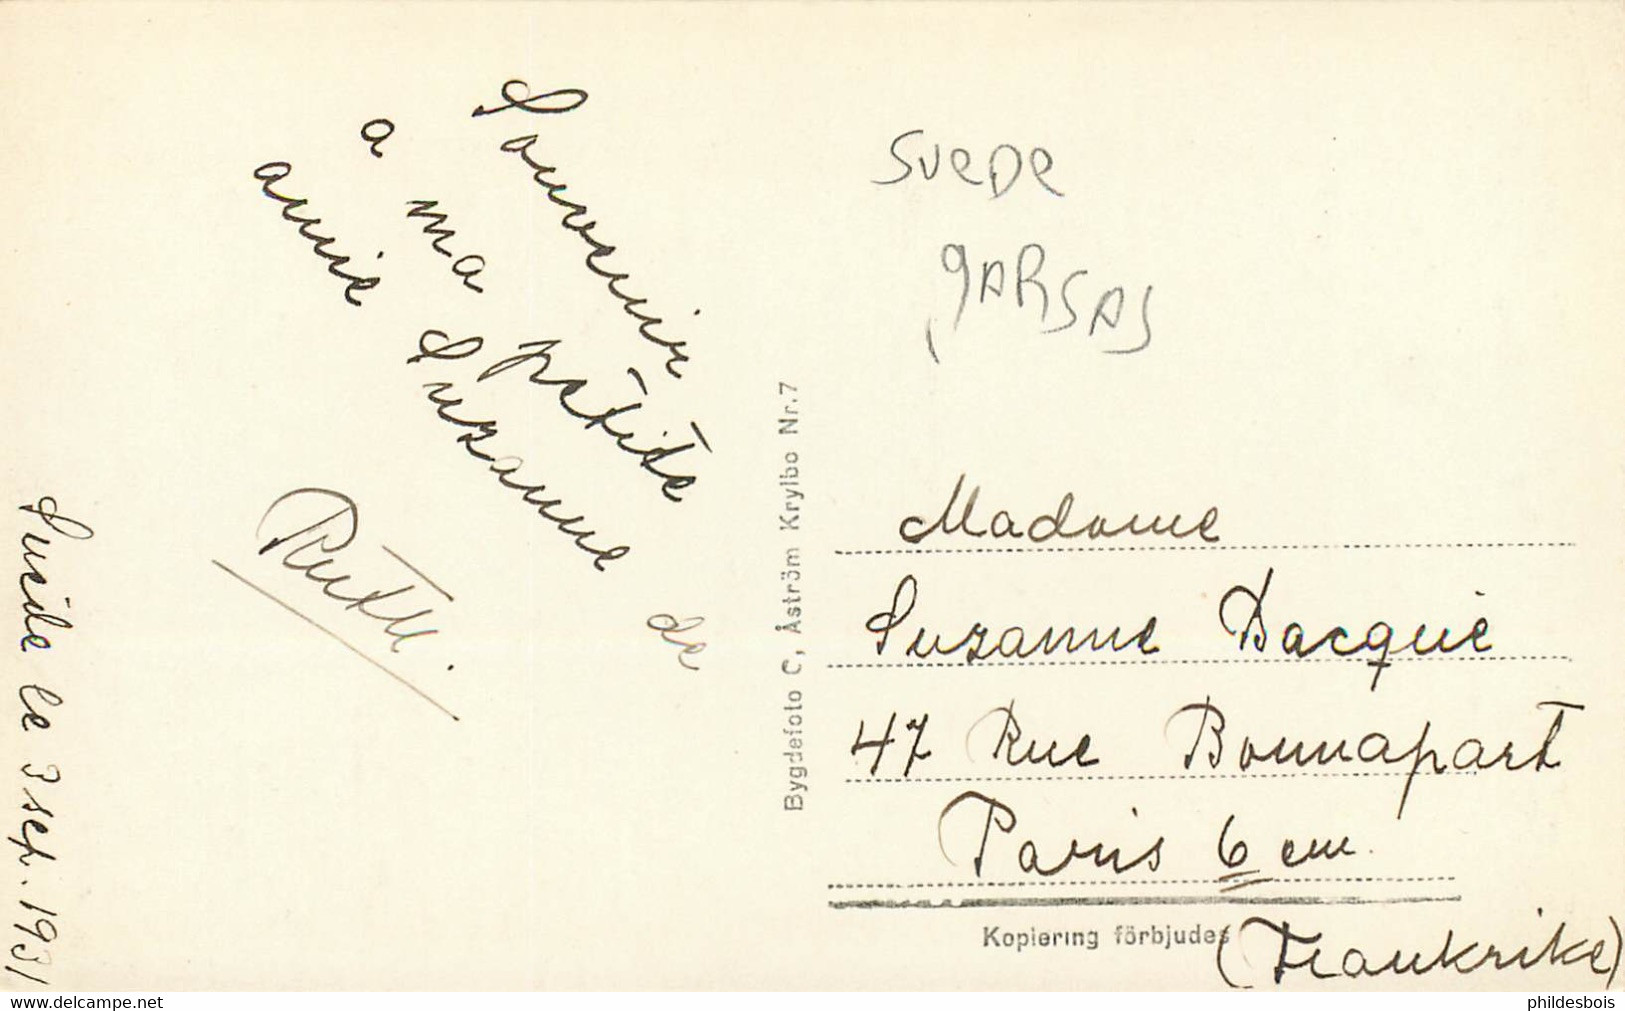 Souvenir
a ma petite
amie Suzanne de
Ruth.
Suède le 3 sep. 1931
Bygdefoto C, Åström Krylbo Nr. 7
SUEDE
GARSAS
Madame
Suzanne Dacquié
47 Rue Bonnapart
Paris 6 em.
Kopiering förbjudes
(Frankrike)
www.delcampe.net
phildesbois